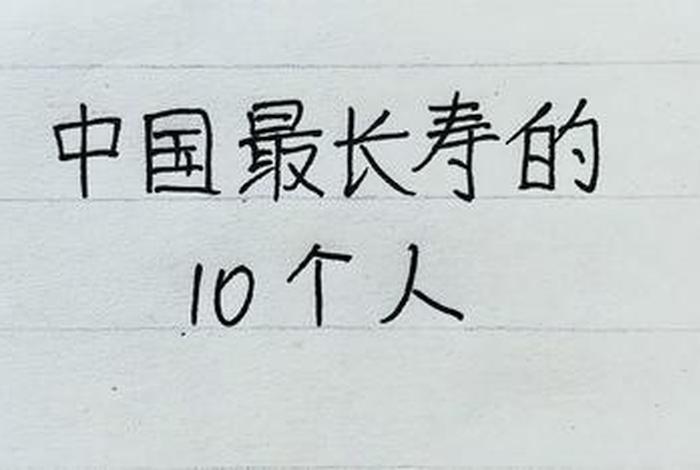 中国最长寿的
10个人